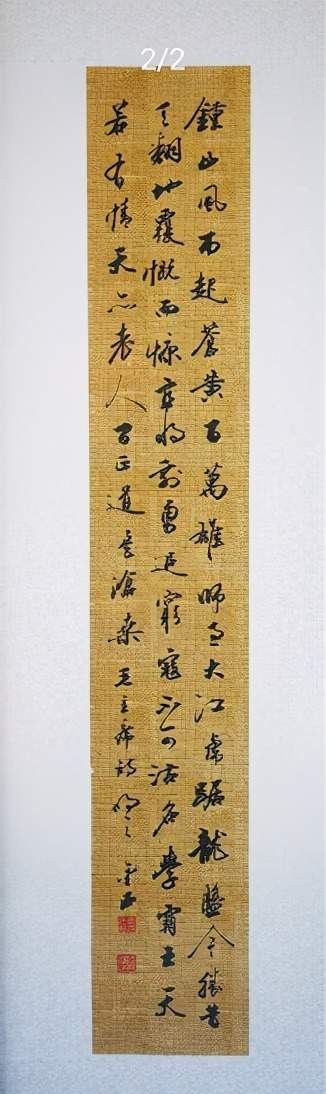 2/2
鍾山風雨起蒼黄百萬雄師過大江虎踞龍盤今勝昔
天翻地覆慨而慷宜將剩勇追窮寇不可沽名學霸王天
若有情天亦老人間正道是滄桑 毛主席詩